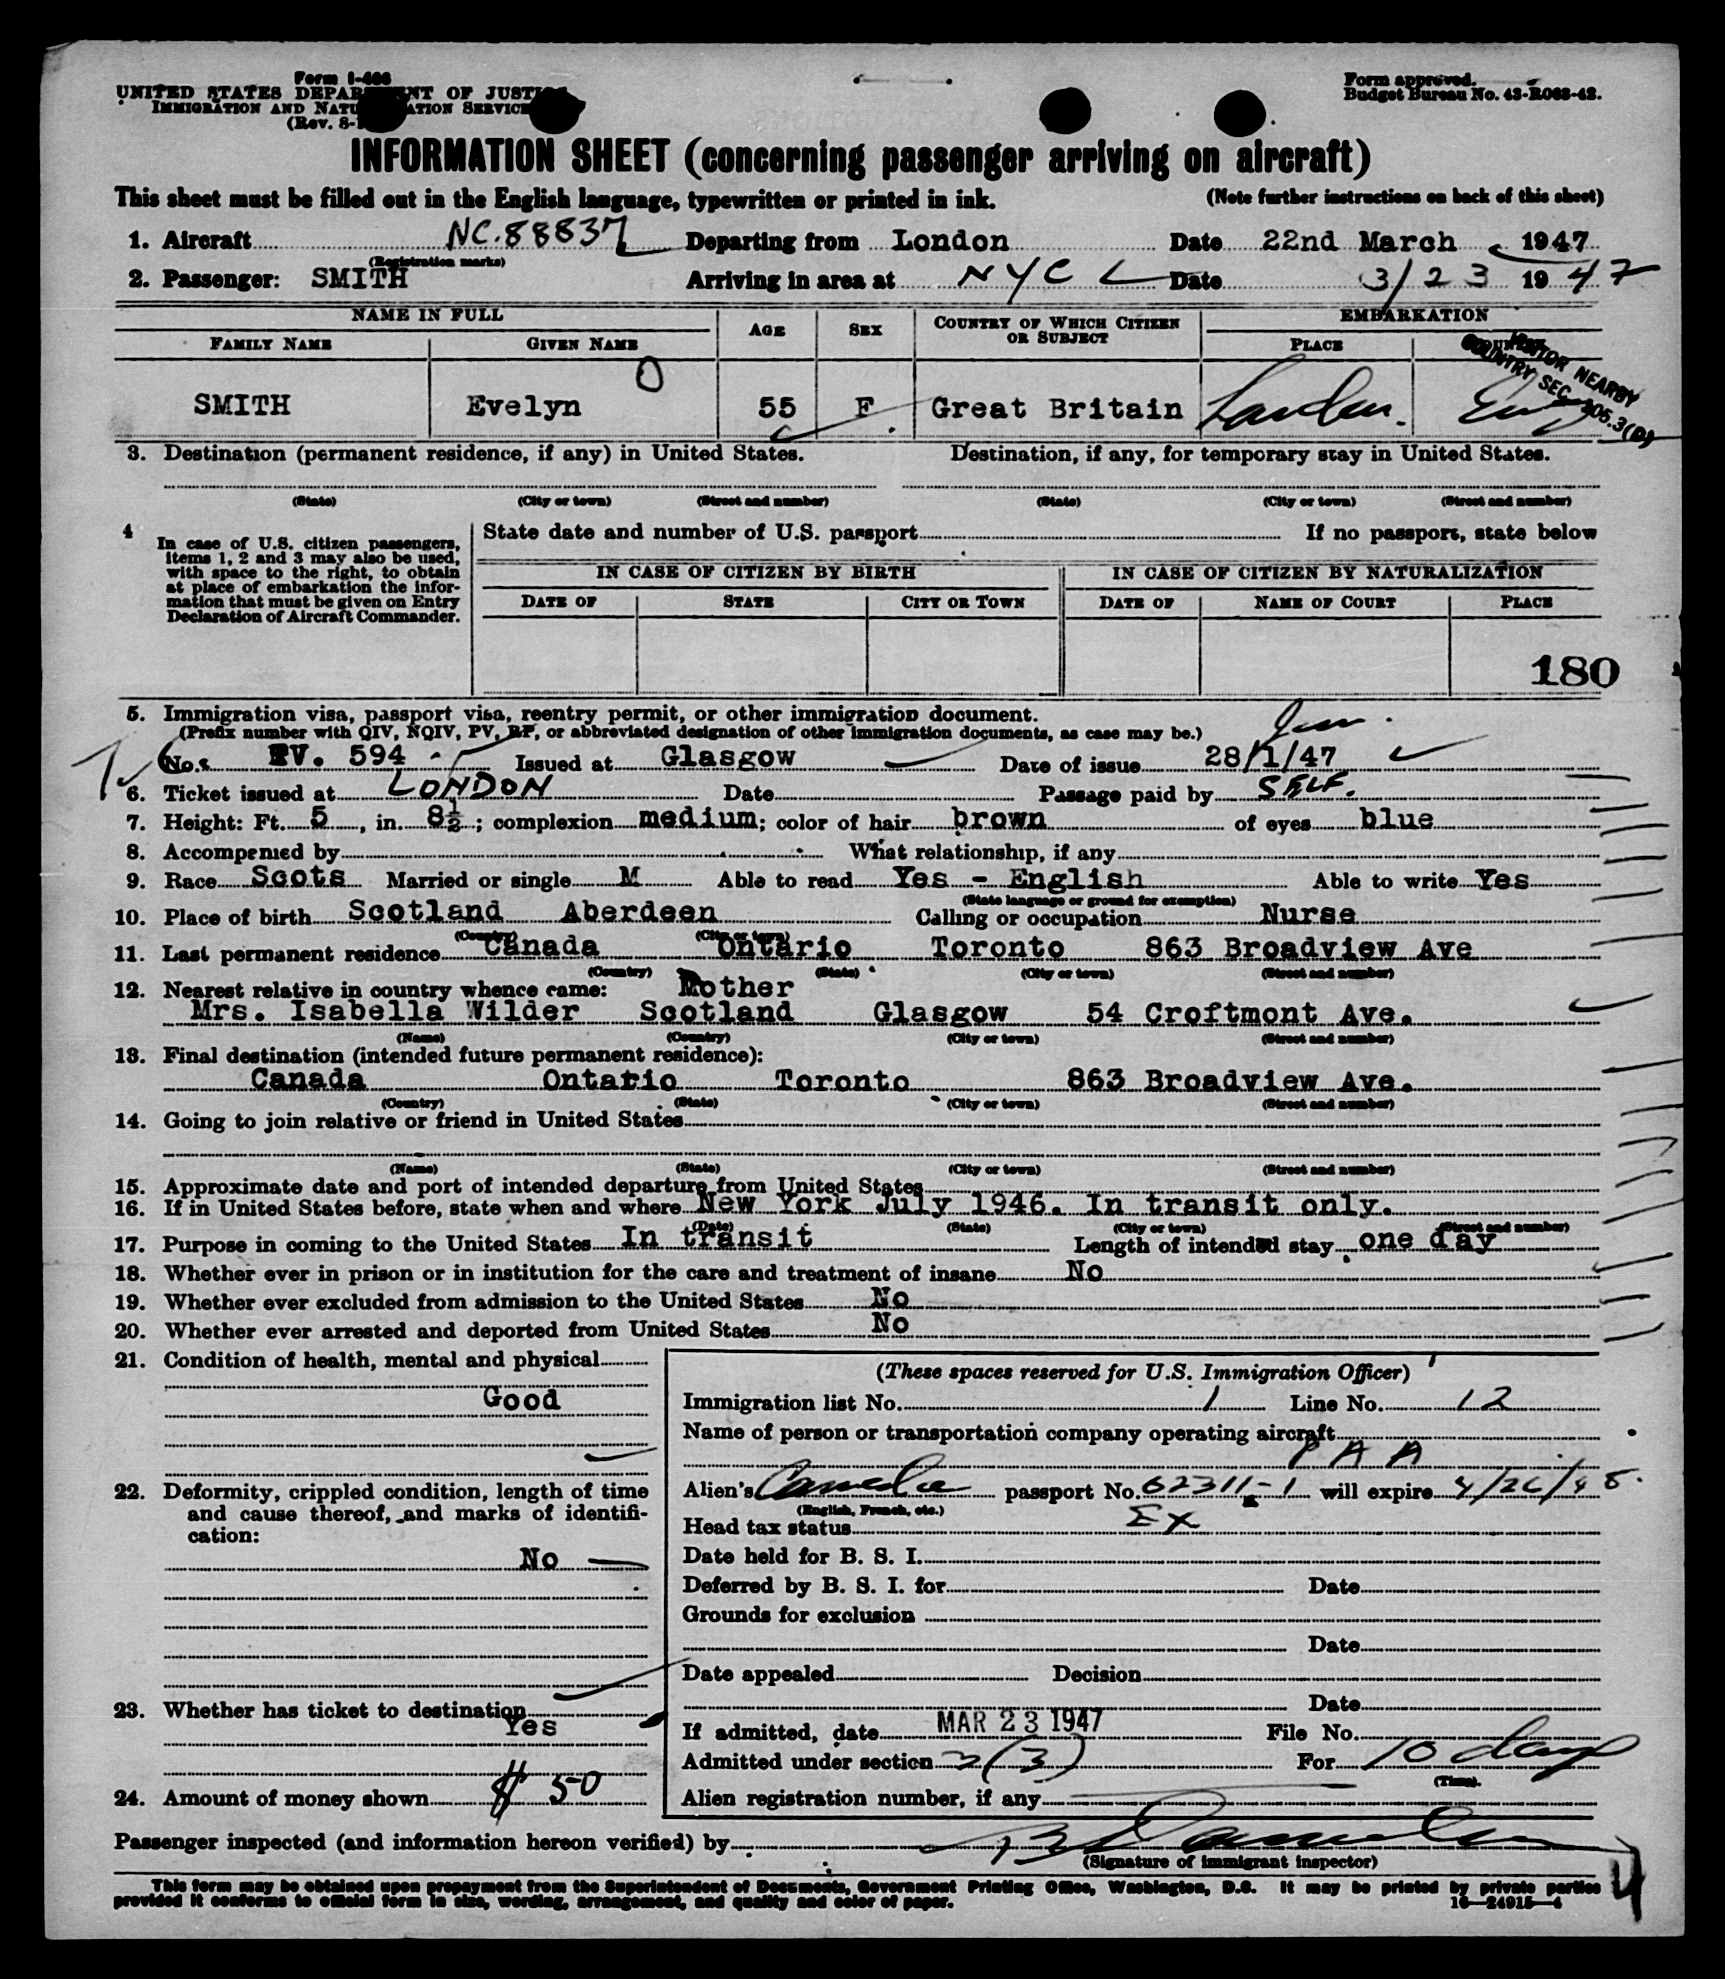 Form I-466
UNITED STATES DEPARTMENT OF JUSTICE
IMMIGRATION AND NATURALIZATION SERVICE
(Rev. 8-
Form approved.
Budget Bureau No. 43-R063-42.
INFORMATION SHEET (concerning passenger arriving on aircraft)
This sheet must be filled out in the English language, typewritten or printed in ink. (Note further instructions on back of this sheet)
1. Aircraft NC.88837 Departing from London Date 22nd March 1947
(Registration marks)
2. Passenger: SMITH Arriving in area at NYC Date 3/23 1947
NAME IN FULL AGE SEX COUNTRY OF WHICH CITIZEN OR SUBJECT EMBARKATION
FAMILY NAME GIVEN NAME PLACE
VISITOR NEARBY
COUNTRY SEC. 105.3(B)
SMITH Evelyn 55 F Great Britain London Eng
3. Destination (permanent residence, if any) in United States. Destination, if any, for temporary stay in United States.
(State) (City or town) (Street and number) (State) (City or town) (Street and number)
4 In case of U.S. citizen passengers, items 1, 2 and 3 may also be used, with space to the right, to obtain at place of embarkation the information that must be given on Entry Declaration of Aircraft Commander.
State date and number of U.S. passport If no passport, state below
IN CASE OF CITIZEN BY BIRTH IN CASE OF CITIZEN BY NATURALIZATION
DATE OF STATE CITY OR TOWN DATE OF NAME OF COURT PLACE
180
5. Immigration visa, passport visa, reentry permit, or other immigration document.
(Prefix number with QIV, NQIV, PV, RP, or abbreviated designation of other immigration documents, as case may be.)
No. PV. 594 Issued at Glasgow Date of issue 28/1/47
6. Ticket issued at LONDON Date Passage paid by SELF.
7. Height: Ft. 5, in. 8½; complexion medium; color of hair brown of eyes blue
8. Accompanied by What relationship, if any
9. Race Scots Married or single M Able to read Yes - English Able to write Yes
(State language or ground for exemption)
10. Place of birth Scotland Aberdeen Calling or occupation Nurse
(Country) (City or town)
11. Last permanent residence Canada Ontario Toronto 863 Broadview Ave
(Country) (State) (City or town) (Street and number)
12. Nearest relative in country whence came: Mother
Mrs. Isabella Wilder Scotland Glasgow 54 Croftmont Ave.
(Name) (Country) (City or town) (Street and number)
13. Final destination (intended future permanent residence):
Canada Ontario Toronto 863 Broadview Ave.
(Country) (State) (City or town) (Street and number)
14. Going to join relative or friend in United States
(Name) (State) (City or town) (Street and number)
15. Approximate date and port of intended departure from United States
16. If in United States before, state when and where New York July 1946. In transit only.
(Date) (State) (City or town) (Street and number)
17. Purpose in coming to the United States In transit Length of intended stay one day
18. Whether ever in prison or in institution for the care and treatment of insane No
19. Whether ever excluded from admission to the United States No
20. Whether ever arrested and deported from United States No
21. Condition of health, mental and physical
Good
22. Deformity, crippled condition, length of time
and cause thereof, and marks of identifi-
cation:
No
23. Whether has ticket to destination
Yes
24. Amount of money shown $ 50
(These spaces reserved for U.S. Immigration Officer)
Immigration list No. 1 Line No. 12
Name of person or transportation company operating aircraft
PAA
Alien's Canada passport No. 62311-1 will expire 4/26/48.
(English, French, etc.)
Head tax status Ex
Date held for B. S. I.
Deferred by B. S. I. for Date
Grounds for exclusion
Date
Date appealed Decision
Date
If admitted, date MAR 23 1947 File No.
Admitted under section 3(3) For 10 days
(Time).
Alien registration number, if any
Passenger inspected (and information hereon verified) by
(Signature of immigrant inspector)
4
This form may be obtained upon prepayment from the Superintendent of Documents, Government Printing Office, Washington, D.C. It may be printed by private parties
provided it conforms to official form in size, wording, arrangement, and quality and color of paper. 16—24915—4